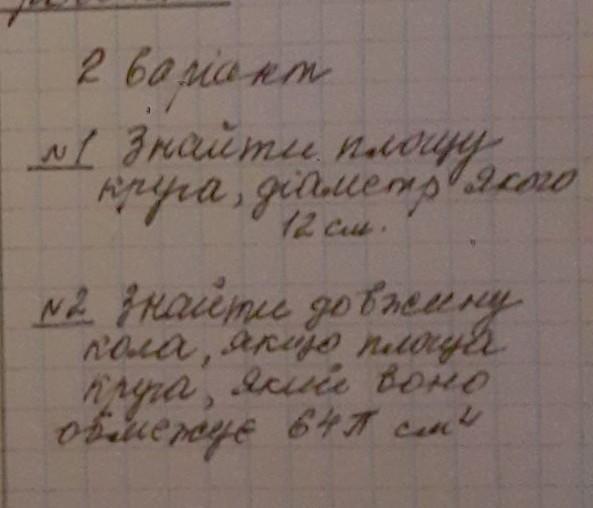 2 варіант
№1 Знайти площу
круга, діаметр якого
12 см.
№2 Знайти довжину
кола, якщо площа
круга, який воно
обмежує 64π см²